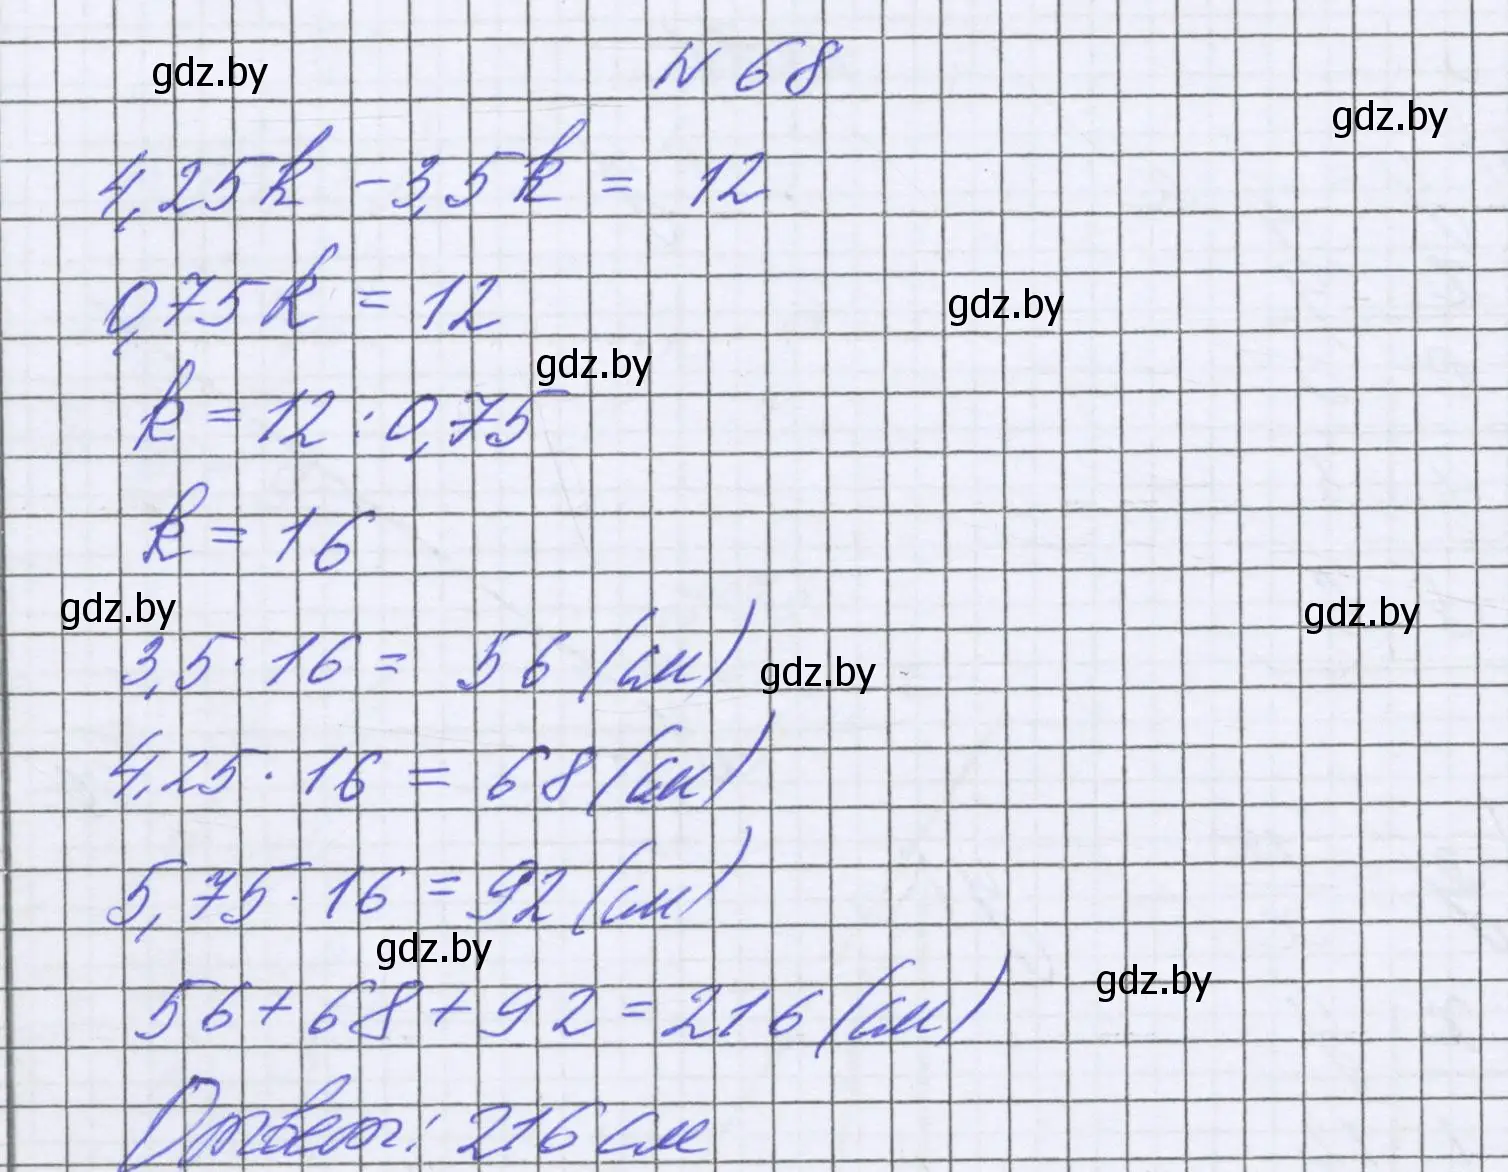 gdz.by
N 68
gdz.by
4,25k - 3,5k = 12
0,75k = 12
gdz.by
gdz.by
k = 12 : 0,75
k = 16
gdz.by
gdz.by
3,5 · 16 = 56 (см)
gdz.by
4,25 · 16 = 68 (см)
5,75 · 16 = 92 (см)
gdz.by
gdz.by
56 + 68 + 92 = 216 (см)
Ответ: 216 см